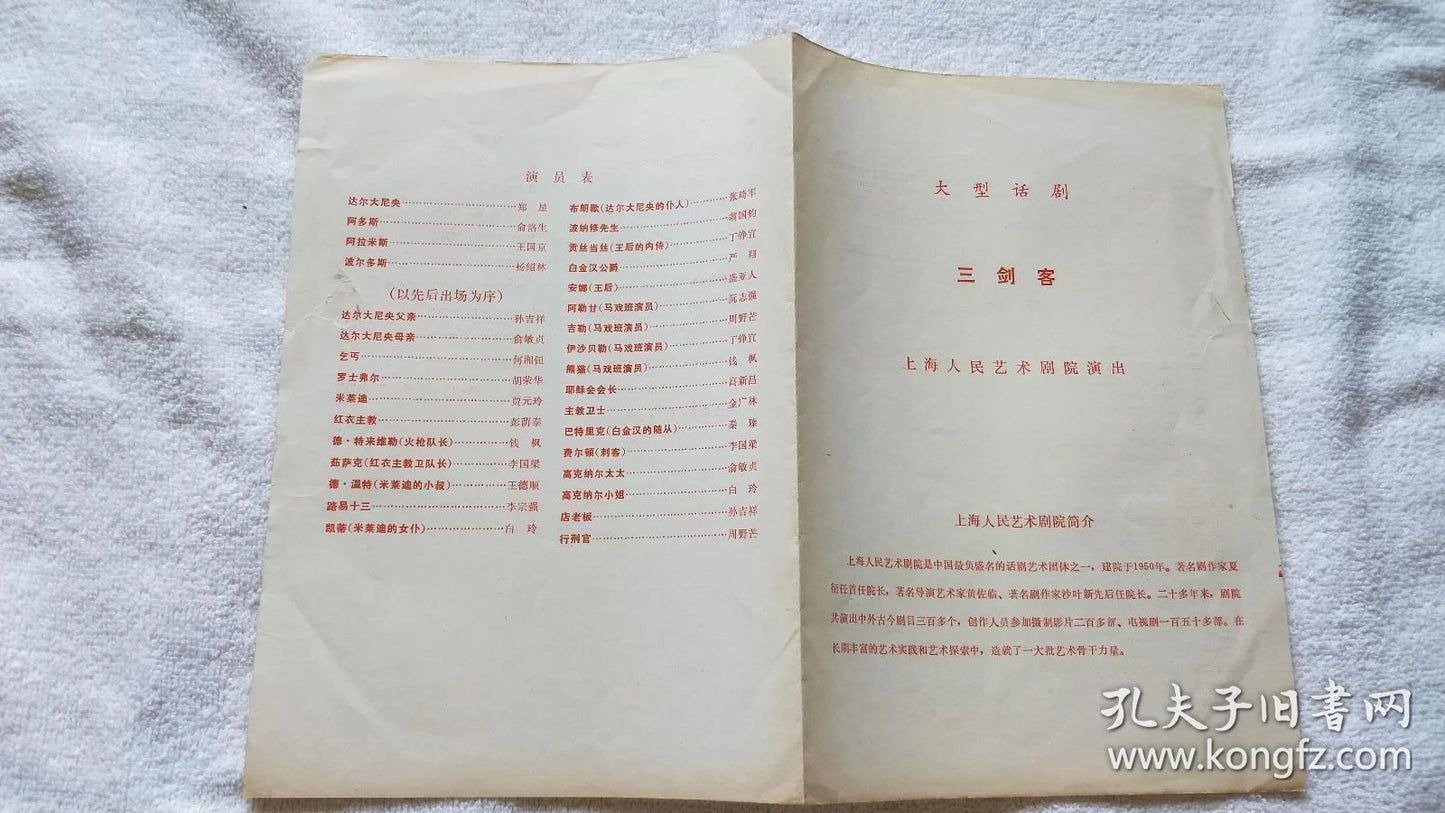 演员表
达尔大尼央………………………郑星
阿多斯………………………俞洛生
阿拉米斯………………………王国京
波尔多斯………………………杨绍林
(以先后出场为序)
达尔大尼央父亲………………孙吉祥
达尔大尼央母亲………………俞敏贞
乞丐………………………何湘钿
罗士弗尔………………………胡荣华
米莱迪………………………贾元玲
红衣主教………………………彭荫泰
德·特来维勒(火枪队长)…………钱枫
茹萨克(红衣主教卫队长)…………李国梁
德·温特(米莱迪的小叔)…………王德顺
路易十三………………………李宗强
凯蒂(米莱迪的女仆)……………白玲
布朗歇(达尔大尼央的仆人)………张琦军
波纳修先生………………………翁国钧
贡丝当丝(王后的内侍)…………丁铮宜
白金汉公爵………………………严翔
安娜(王后)………………………盖亚人
阿勒甘(马戏班演员)……………阮志强
吉勒(马戏班演员)………………周野芒
伊沙贝勒(马戏班演员)…………丁铮宜
熊猫(马戏班演员)………………钱枫
耶稣会会长………………………高新昌
主教卫士………………………金广林
巴特里克(白金汉的随从)………秦臻
费尔顿(刺客)……………………李国梁
高克纳尔太太……………………俞敏贞
高克纳尔小姐……………………白玲
店老板………………………孙吉祥
行刑官………………………周野芒
大型话剧
三剑客
上海人民艺术剧院演出
上海人民艺术剧院简介
上海人民艺术剧院是中国最负盛名的话剧艺术团体之一,建院于1950年。著名剧作家夏
衍任首任院长,著名导演艺术家黄佐临、著名剧作家沙叶新先后任院长。二十多年来,剧院
共演出中外古今剧目三百多个,创作人员参加摄制影片二百多部、电视剧一百五十多部。在
长期丰富的艺术实践和艺术探索中,造就了一大批艺术骨干力量。
孔夫子旧书网
www.kongfz.com